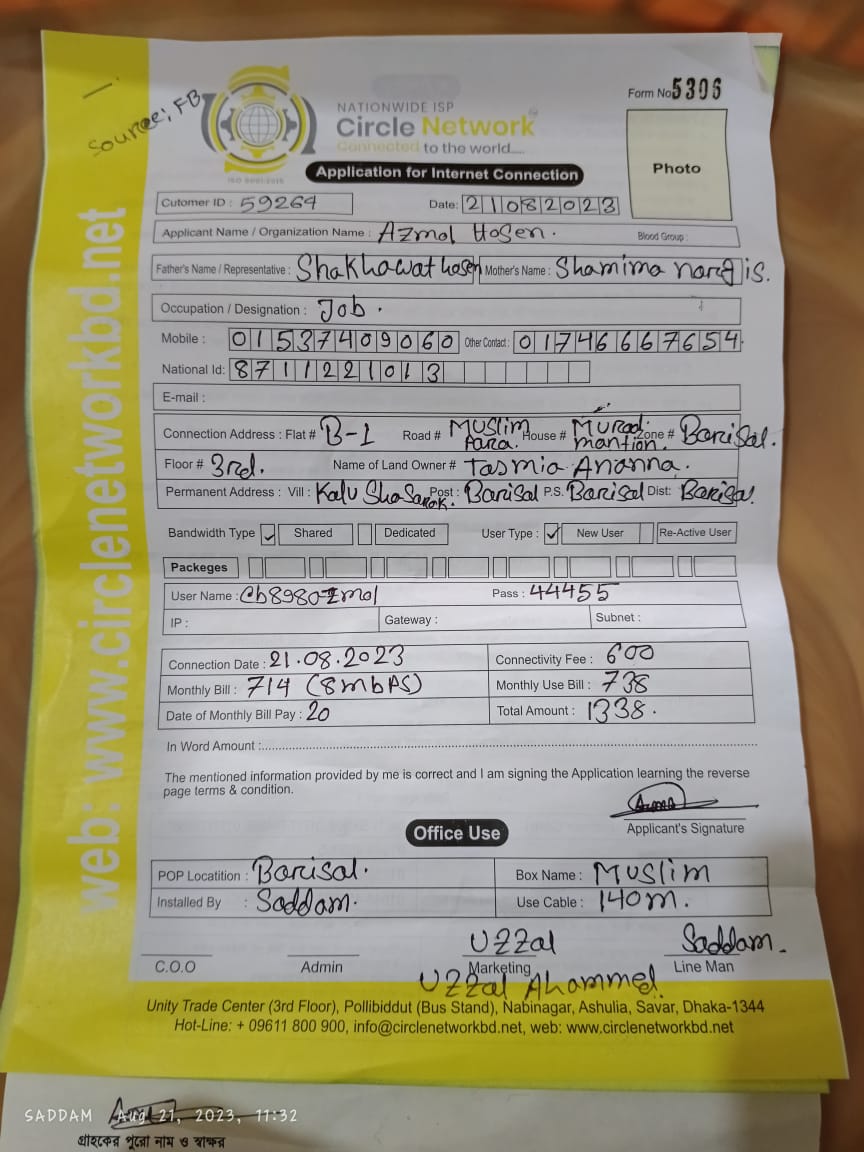 Source; FB
NATIONWIDE ISP
Circle Network
Connected to the world....
ISO 9001:2015
Form No 5306
Photo
Application for Internet Connection
Cutomer ID : 59264 Date: 21082023
Applicant Name / Organization Name : Azmol Hosen. Blood Group :
Father's Name / Representative : Shakhawat hosen Mother's Name : Shamima nargis.
Occupation / Designation : Job.
Mobile : 01537409060 Other Contact : 01746667654
National Id: 8711221013
E-mail :
Connection Address : Flat # B-1 Road # Muslim Para. House # Murad mantion. Zone # Barisal.
Floor # 3rd. Name of Land Owner # Tasmia Ananna.
Permanent Address : Vill : Kalu Sha Sarak. Post : Barisal P.S. Barisal Dist: Barisal.
Bandwidth Type ✓ Shared Dedicated User Type : ✓ New User Re-Active User
Packeges
User Name : Pass : 44455
IP : Gateway : Subnet :
Connection Date : 21.08.2023 Connectivity Fee : 600
Monthly Bill : 714 (8mbps) Monthly Use Bill : 738
Date of Monthly Bill Pay : 20 Total Amount : 1338.
In Word Amount :
The mentioned information provided by me is correct and I am signing the Application learning the reverse
page terms & condition.
Applicant's Signature
Office Use
POP Locatition : Barisal. Box Name : Muslim
Installed By : Saddam. Use Cable : 140m.
Uzzal Saddam.
C.O.O Admin Marketing Line Man
Uzzal Ahammed
Unity Trade Center (3rd Floor), Pollibiddut (Bus Stand), Nabinagar, Ashulia, Savar, Dhaka-1344
Hot-Line: + 09611 800 900, info@circlenetworkbd.net, web: www.circlenetworkbd.net
web: www.circlenetworkbd.net
SADDAM Aug 21, 2023, 11:32
গ্রাহকের পুরো নাম ও স্বাক্ষর